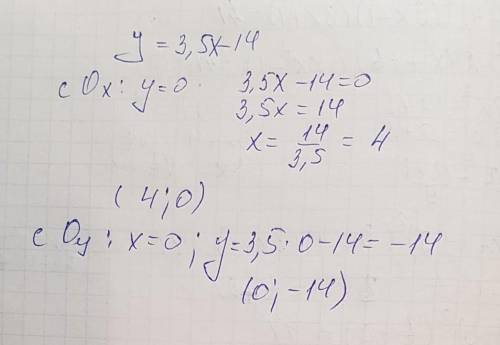 y = 3,5x-14
с Ox: y=0 3,5x -14=0
3,5x = 14
x= 14/3,5 = 4
(4;0)
с Oy: x=0; y=3,5·0-14= -14
(0;-14)